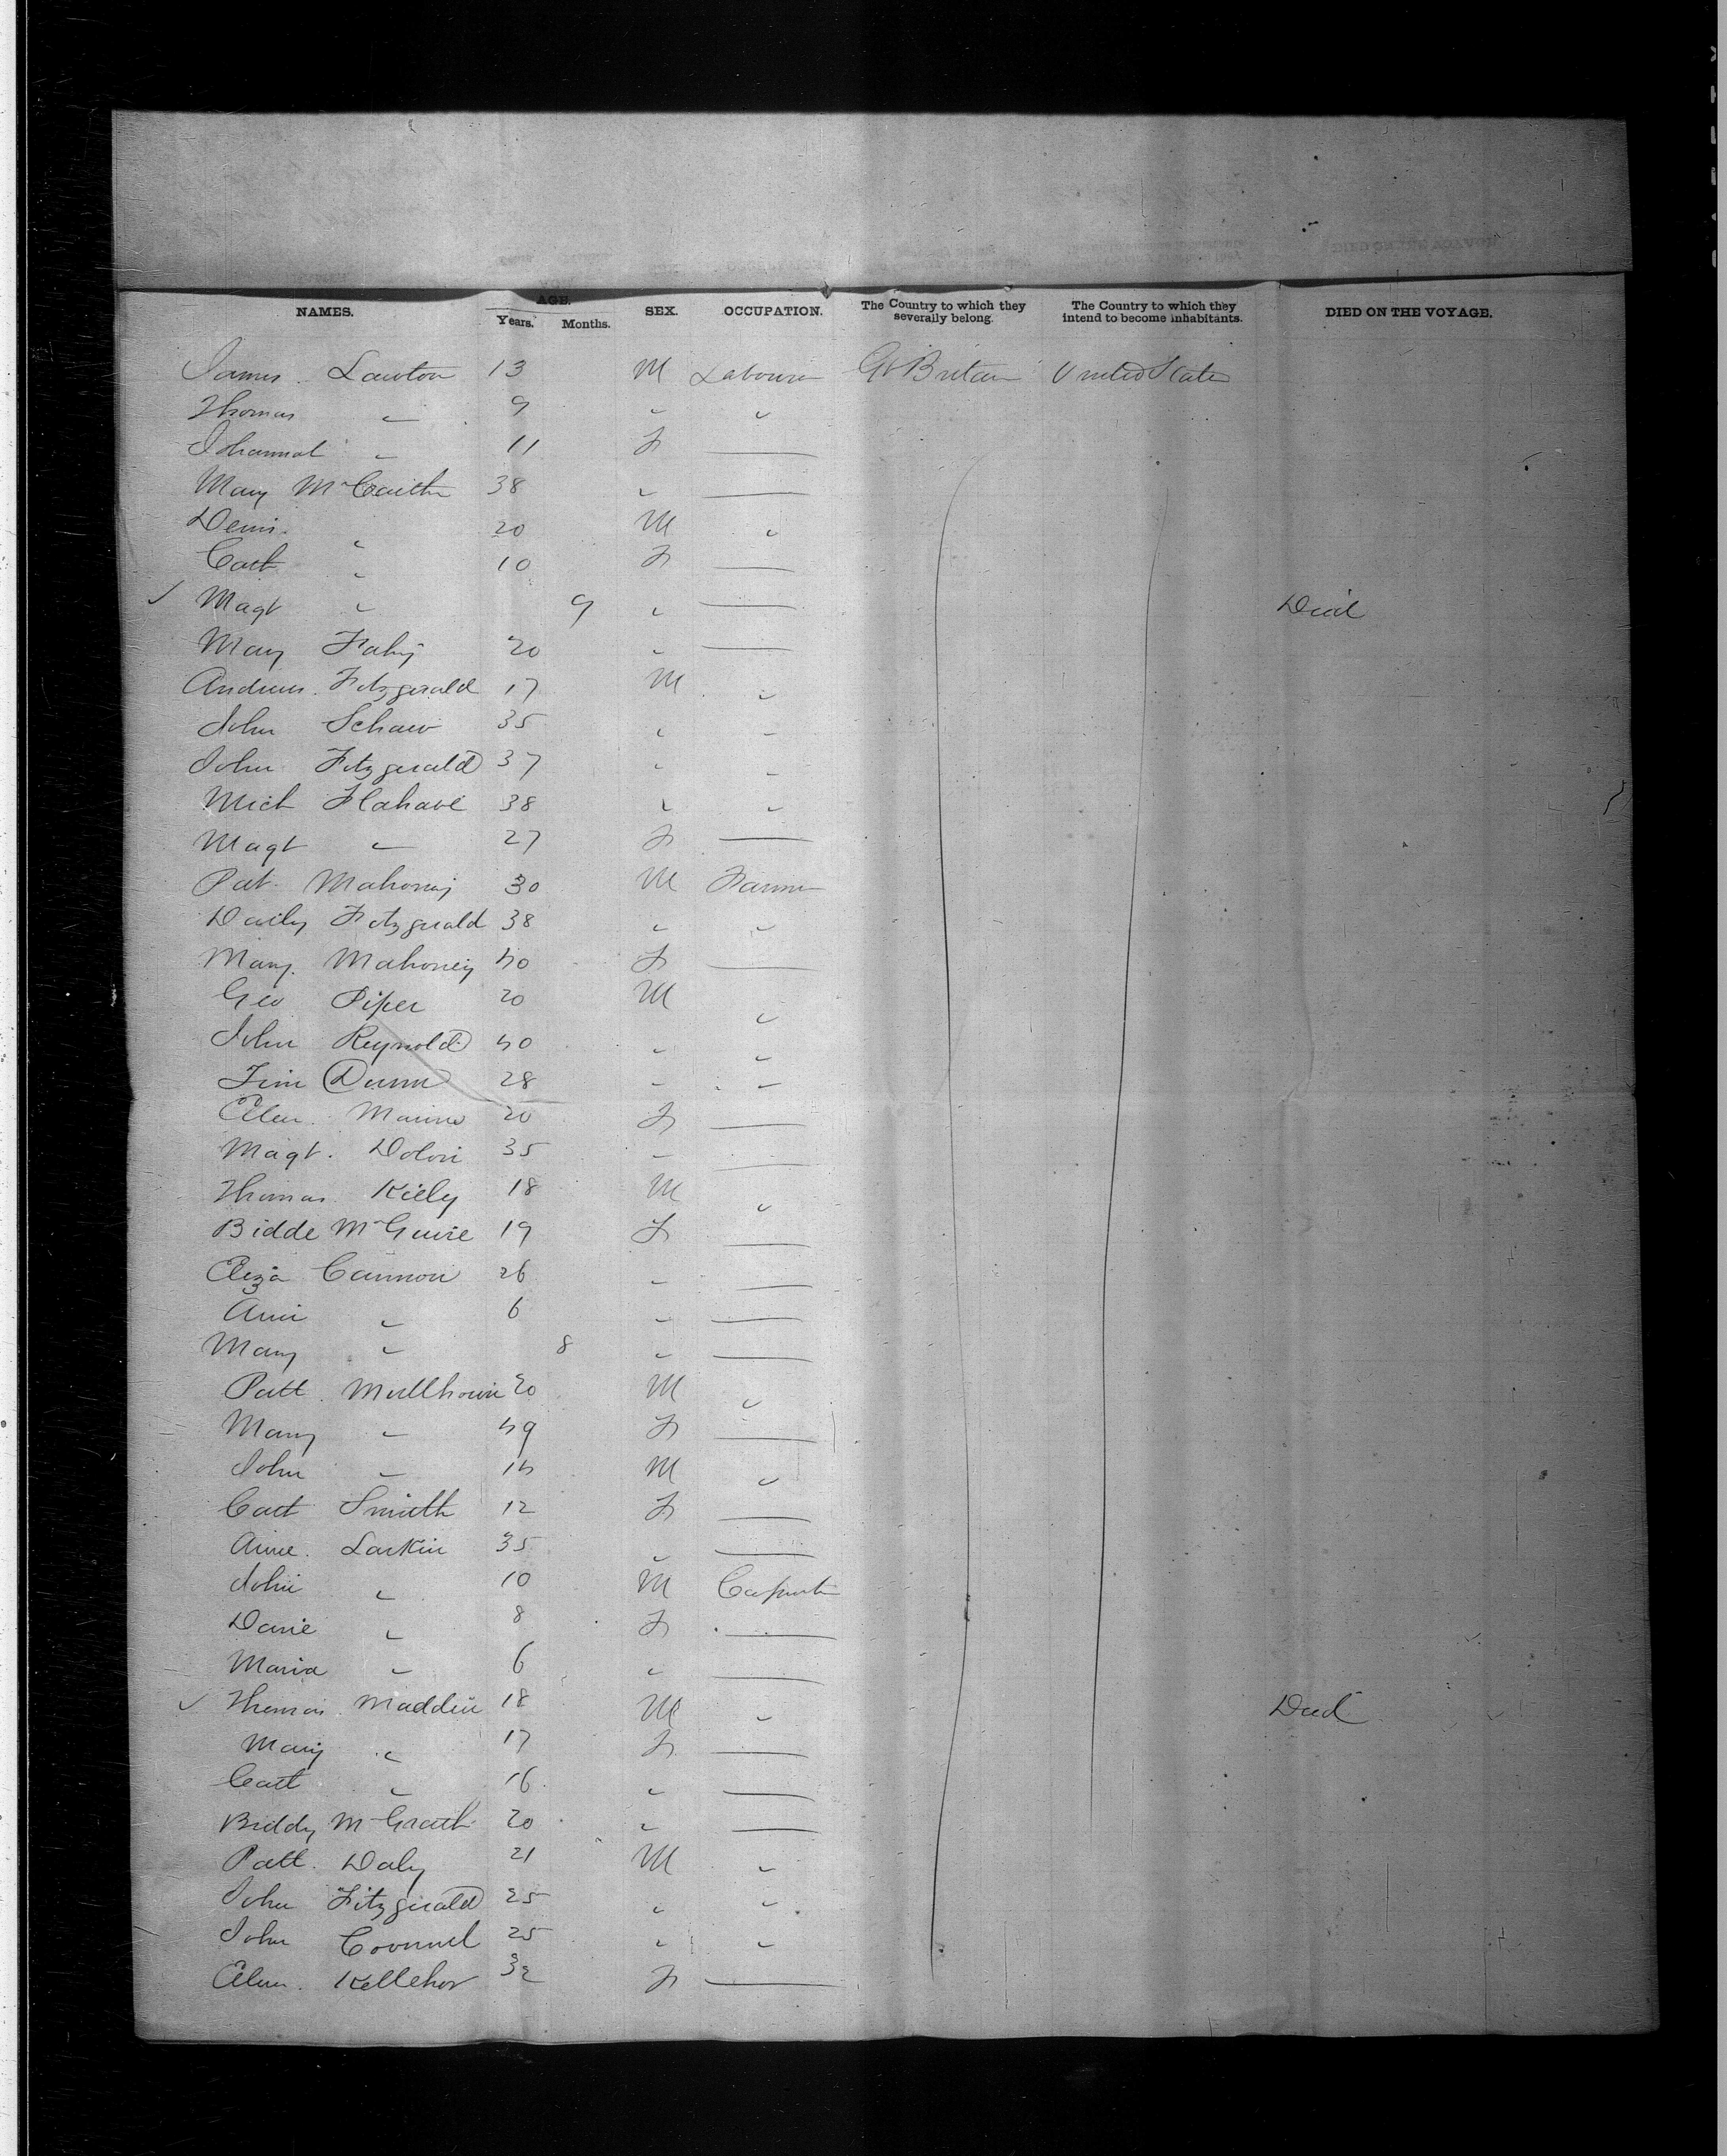 NAMES. AGE. Years. Months. SEX. OCCUPATION. The Country to which they severally belong. The Country to which they intend to become inhabitants. DIED ON THE VOYAGE.
James Lawton 13 M Labourer Gt Britain United States
Thomas " 9 " "
Johannah " 11 F —
Mary McCarthy 38 " —
Denis " 20 M "
Cath " 10 F —
✓ Magt " 9 " — Died
Mary Fahy 20 " —
Andrew Fitzgerald 17 M "
John Schaw 35 " "
John Fitzgerald 37 " "
Mich Flahave 38 " "
Magt " 27 F —
Pat Mahoney 30 M Farmer
Fitzgerald 38 " "
Mary Mahoney 40 F —
Geo Piper 20 M "
John Reynold 40 " "
Tim Dunn 28 " "
Ellen 20 F —
Magt. 35 " —
Thomas Kiely 18 M "
Bidde McGuire 19 F —
Eliza Cannon 26 " —
Ann " 6 " —
Mary " 8 " —
Patt 20 M "
Mary " 49 F —
John " 14 M "
Cath Smith 12 F —
Anne Larkin 35 " —
John " 10 M Carpenter
" 8 F —
Maria " 6 " —
✓ Thomas Madden 18 M " Died
Mary " 17 F —
Cath " 16 " —
Biddy McGrath 20 " —
Patt. Daly 21 M "
John Fitzgerald 25 " "
John 25 " "
Ellen Kelleher 32 F —